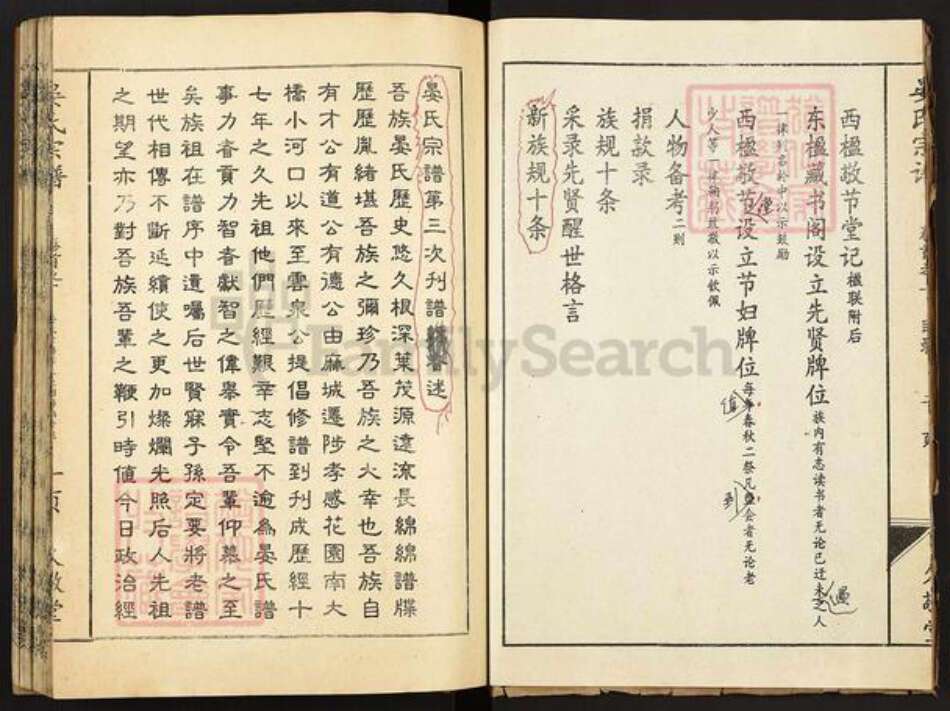 西楹敬节堂记楹联附后
东楹藏书阁设立先贤牌位族内有志读书者无论已迁未迁之人
一律列名龄中以示鼓励
西楹敬节堂设立节妇牌位每年春秋二祭凡与会者无论老
少人等一律输书鼓敬以示钦佩
人物备考二则
捐款录
族规十条
采录先贤醒世格言
新族规十条
晏氏宗譜第三次刊譜 述
吾族晏氏歷史悠久根深葉茂源遠流長綿綿譜牒
歷歷胤緒堪吾族之彌珍乃吾族之大幸也吾族自
有才公有道公有德公由麻城遷陟孝感花園南大
橋小河口以來至雲泉公提倡修譜到刊成歷經十
七年之久先祖他們歷經艱辛志堅不逾為晏氏譜
事力者貢力智者獻智之偉舉實令吾輩仰慕之至
矣族祖在譜序中遺囑后世賢寐子孫定要將老譜
世代相傳不斷延續使之更加燦爛光照后人先祖
之期望亦乃對吾族吾輩之鞭引時值今日政治經
晏氏宗譜
FamilySearch